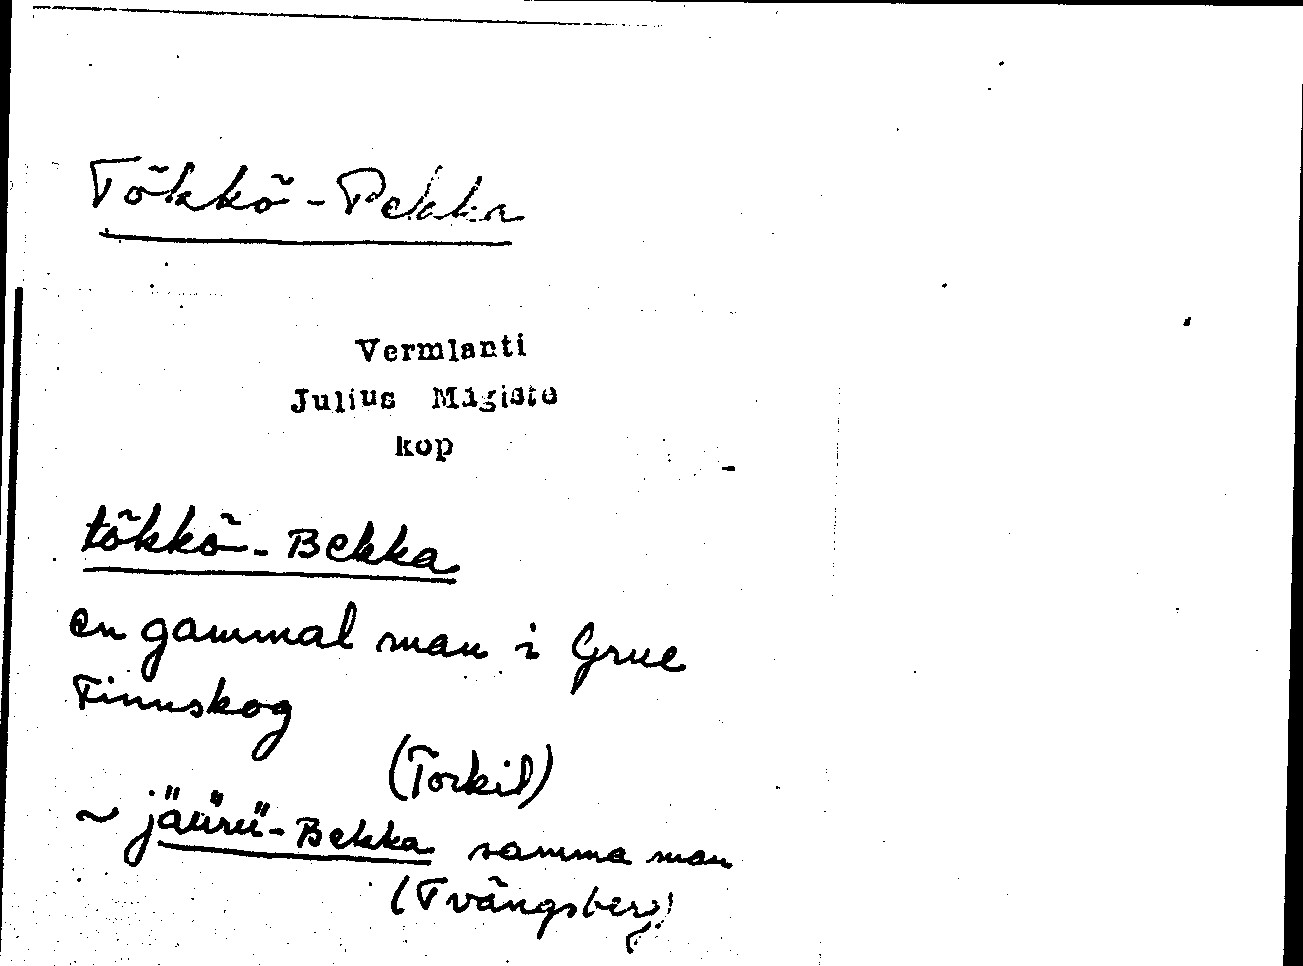 Tõkkõ-Pekka
Vermlanti
Julius Mägiste
kop
tõkkõ-Bekka
en gammal man i Grue
Finnskog
(Torkil)
~ jäürü-Bekka samma man
(Tvängsberg)